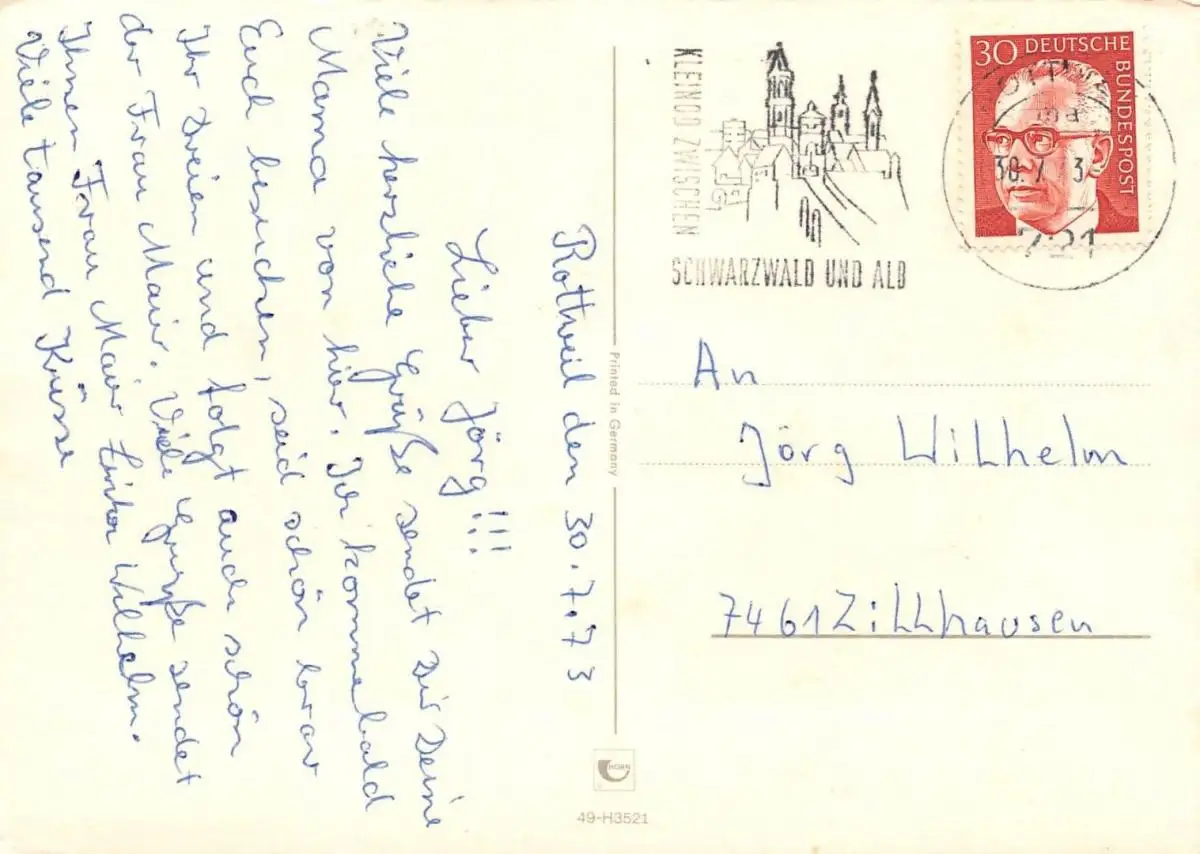 Rottweil den 30.7.73
Lieber Jörg!!!
Viele herzliche Grüße sendet Dir Deine
Mama von hier. Ich komme bald
Euch besuchen, seid schön brav
Ihr Dreien und folgt auch schön
der Frau Mair. Viele Grüße sendet
Ihnen Frau Mair Wilhelm.
Viele tausend Küsse
KLEINOD ZWISCHEN
SCHWARZWALD UND ALB
30 DEUTSCHE
BUNDESPOST
30.7. 3
721
An
Jörg Wilhelm
7461 Zillhausen
Printed in Germany
HORN
49-H3521